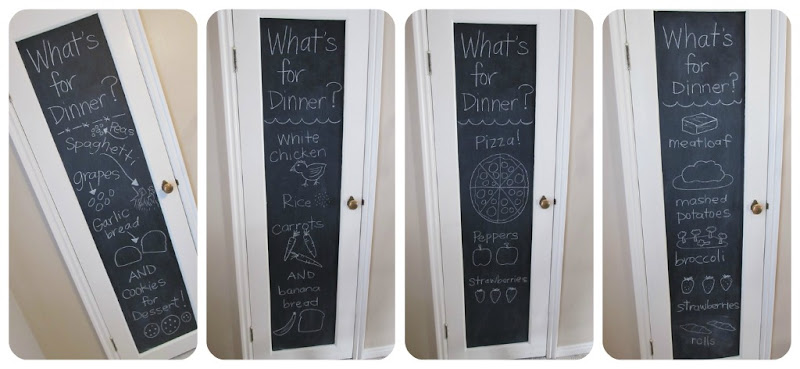 What's
for
Dinner?
Peas
Spaghetti
grapes
Garlic
bread
AND
cookies
for
Dessert!
What's
for
Dinner?
White
chicken
Rice
carrots
AND
banana
bread
What's
for
Dinner?
Pizza!
Peppers
strawberries
What's
for
Dinner?
meatloaf
mashed
potatoes
broccoli
strawberries
rolls